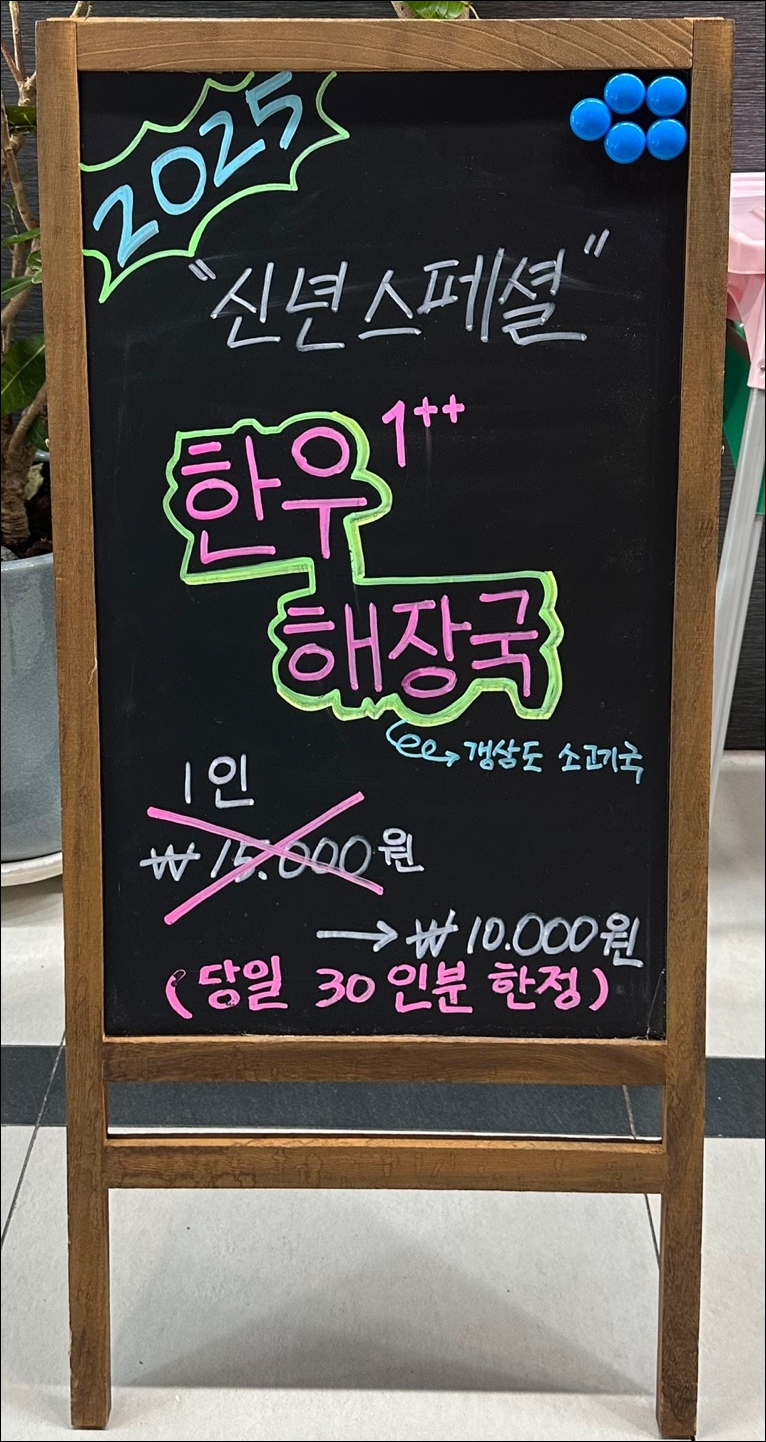 2025
"신년스페셜"
한우 1++
해장국
갱상도 소고기국
1인
₩15.000원
→ ₩10.000원
(당일 30인분 한정)